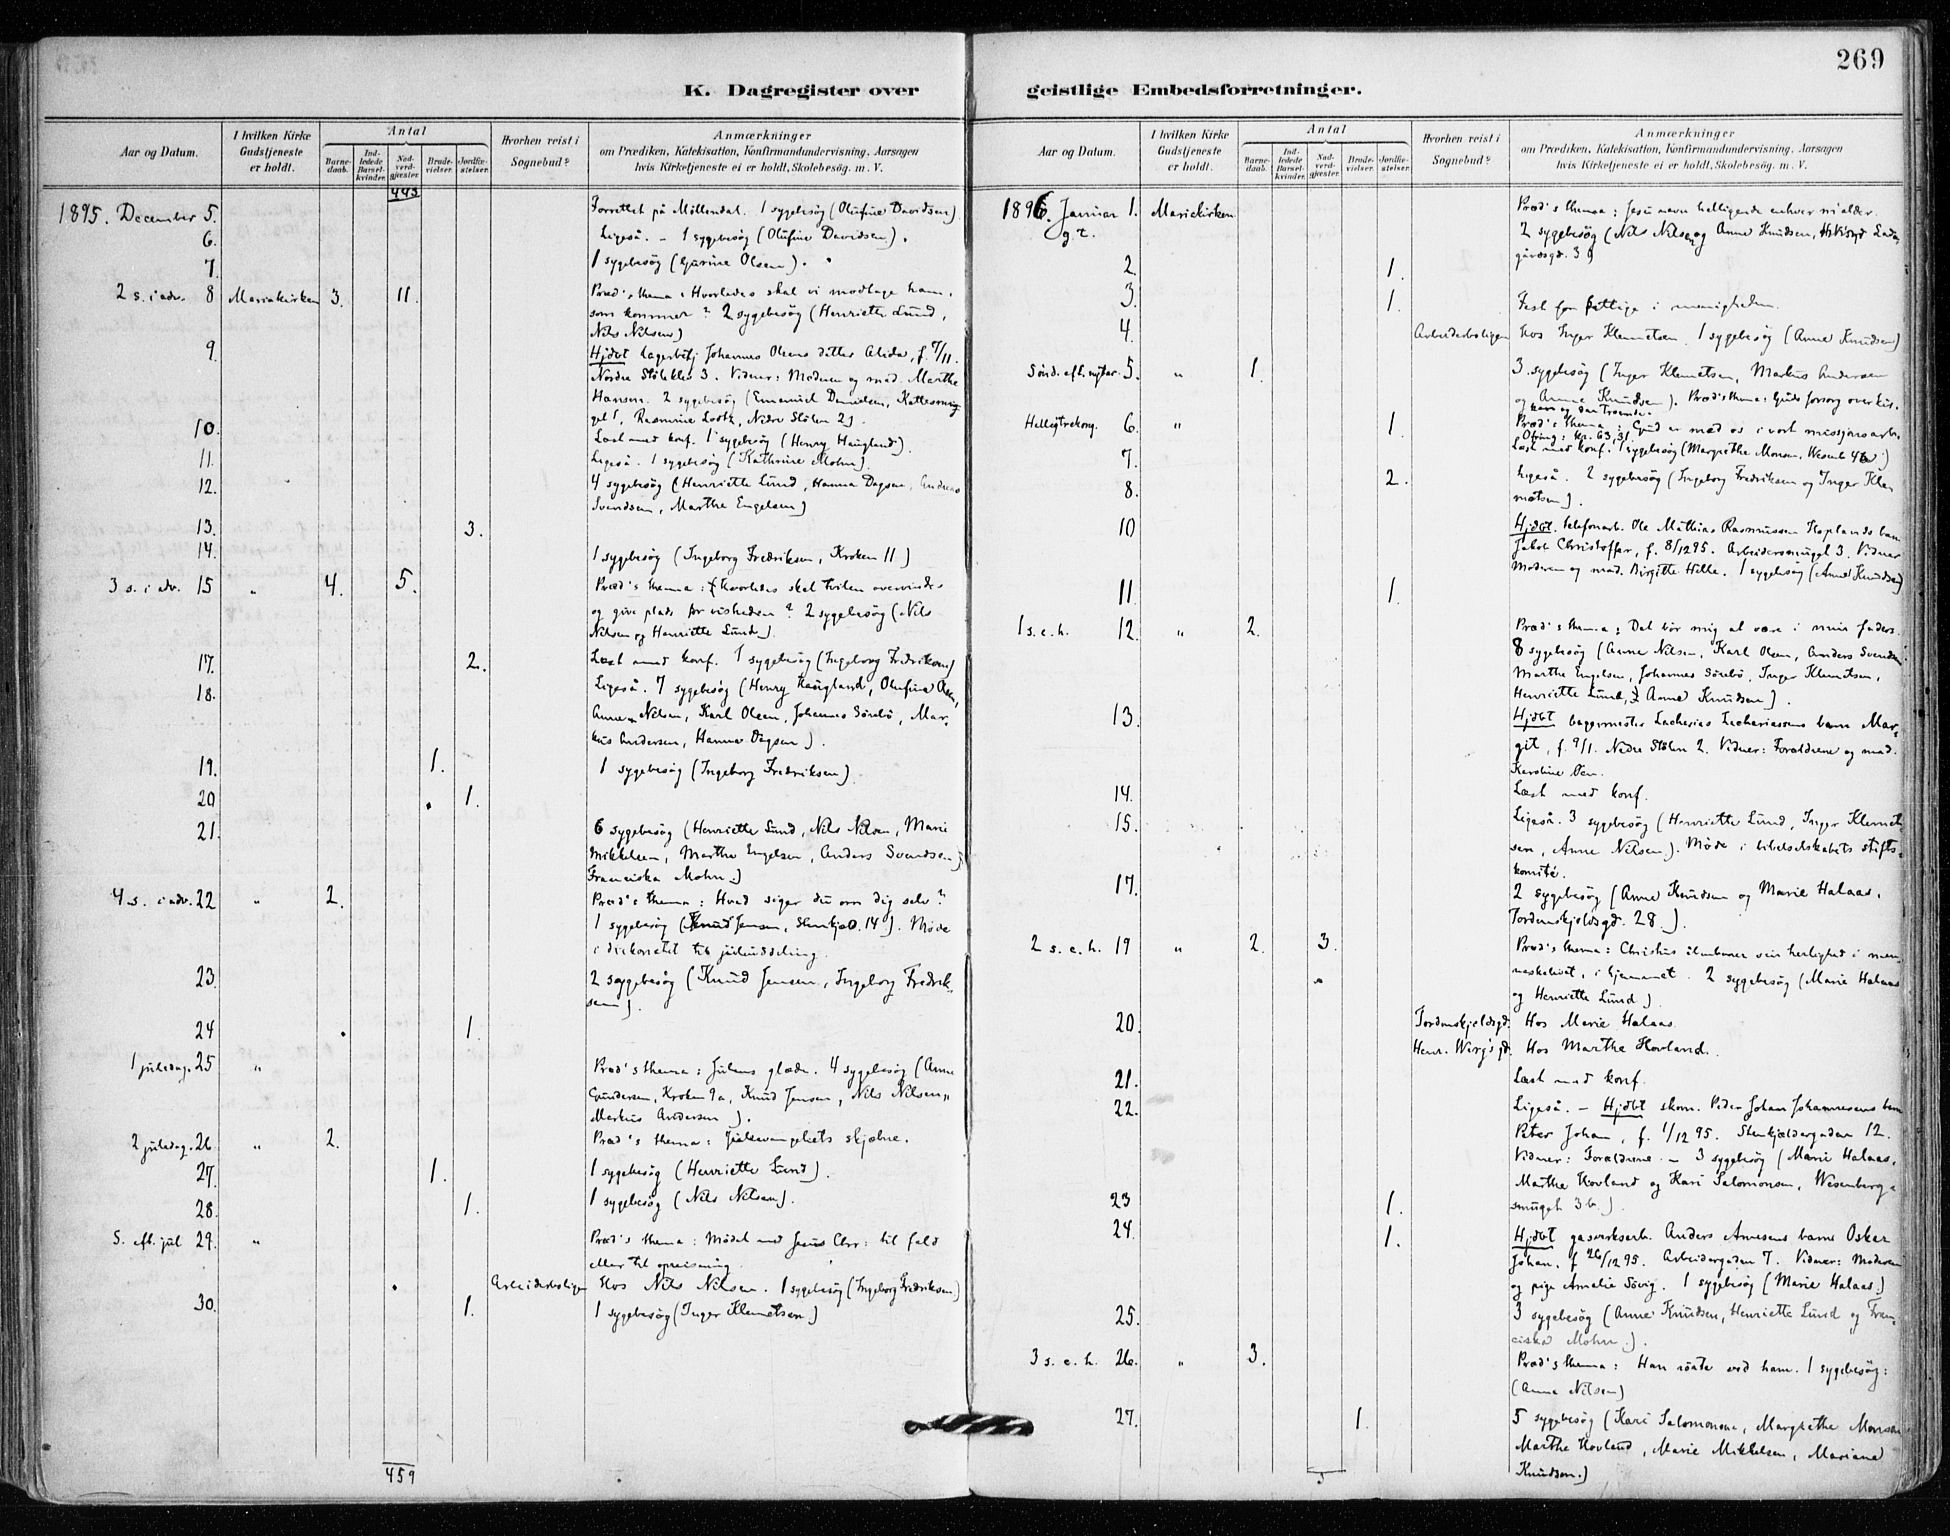 269
K. Dagregister over
geistlige Embedsforretninger.
Aar og Datum.
I hvilken Kirke
Gudstjeneste
er holdt.
Antal
Barne-
daab.
Ind-
ledede
Barsel-
kvinder.
Nad-
verd-
gjæster.
Brude-
vielser.
Jordfæ-
stelser.
Hvorhen reist i
Sognebud?
Anmærkninger
om Prædiken, Katekisation, Konfirmandundervisning. Aarsagen
hvis Kirketjeneste ei er holdt, Skolebesøg. m. V.
443
1895. December 5. Forrettet på Möllendal. 1 sygebesög (Olufine Davidsen)
6. Ligeså. – 1 sygebesög (Olufine Davidsen).
7. 1 sygebesög (Gurine Olsen).
2 s. i adv. 8 Mariakirken 3. 11. Præd's thema: Hvorledes skal vi modtage ham,
som kommer? 2 sygebesög (Henriette Lund,
Nils Nilsen)
9. Hjdbt Johannes Olsens datter Alida, f. 7/11.
Nordre 3. Vidner: Moderen og mad. Marthe
Hansen. 2 sygebesög (Emanuel Danielsen,
Rasmine Nedre Stölen 2)
10. Læst med konf. 1 sygebesög (Henry Haugland).
11. Ligeså. 1 sygebesög (Kathrine Mohn).
12. 4 sygebesög (Henriette Lund, Hanna Dagsen,
Svendsen, Marthe Engelsen)
13. 3.
14. 1 sygebesög (Ingeborg Fredriksen, Kroken 11)
3 s. i adv. 15 " 4. 5. Præd's thema: Hvorledes skal tvilen overvindes
og give plads for visheden? 2 sygebesög (Nils
Nilsen og Henriette Lund)
17. 2. Læst med konf. 1 sygebesög (Ingeborg Fredriksen)
18. Ligeså. 7 sygebesög (Henry Haugland, Olufine Olsen,
Anne Nilsen, Karl Olsen, Johannes Sörebö, Mar-
kus Andersen, Hanna Dagsen).
19. 1. 1 sygebesög (Ingeborg Fredriksen)
20 1.
21. 6 sygebesög (Henriette Lund, Nils Nilsen, Marie
Mikkelsen, Marthe Engelsen, Anders Svendsen,
Franciska Mohn)
4 s. i adv. 22 " 2. Præd's thema: Hvad siger du om dig selv?
1 sygebesög (Knud Jensen, Stenkjæld. 14). Møde
i diakoratet til juleuddeling.
23. 2 sygebesög (Knud Jensen, Ingeborg Fredrik-
sen).
24 1.
1 juledag. 25 " Præd's thema: Julens glæde. 4 sygebesög (Anne
Gundersen, Kroken 9a, Knud Jensen, Nils Nilsen,
Markus Andersen).
2 juledag. 26 " 2. Præd's thema: Juleevangeliets skjæbne.
27. 1. 1 sygebesög (Henriette Lund).
28. 1. 1 sygebesög (Nils Nilsen).
S. eft. jul 29. " Præd's thema: Mödet med Jesus Chr: til fald
eller til opreisning.
Arbeiderboligen Hos Nils Nilsen. 1 sygebesög (Ingeborg Fredriksen)
30. 1. 1 sygebesög (Inger Klemetsen)
459
Aar og Datum.
I hvilken Kirke
Gudstjeneste
er holdt.
Antal
Barne-
daab.
Ind-
ledede
Barsel-
kvinder.
Nad-
verd-
gjæster.
Brude-
vielser.
Jordfæ-
stelser.
Hvorhen reist i
Sognebud?
Anmærkninger
om Prædiken, Katekisation, Konfirmandundervisning. Aarsagen
hvis Kirketjeneste ei er holdt, Skolebesøg. m. V.
1896. Januar 1. Mariakirken Præd's thema: Jesu navn helligende enhver alder.
2 sygebesög (Nils Nilsen og Anne Knudsen,
2. 1.
3. 1. Fest for fattige i menigheden.
4. Arbeiderboligen Hos Inger Klemetsen. 1 sygebesög (Anne Knudsen)
Sönd. eft. nytår. 5. " 1. 3 sygebesög (Inger Klemetsen, Markus Andersen
og Anne Knudsen). Præd's thema: Guds forsorg over
Helligtrekong. 6. " 1. Præd's thema: Gud er med os i vort missionsarb.
Ofring: kr. 63,31.
7. Læst med konf. 1 sygebesög (Margrethe Monsen,
8. 2. Ligeså. 2 sygebesög (Ingeborg Fredriksen og Inger Kle-
metsen).
10 Hjdbt. telefonarb. Ole Mathias Rasmussen barn
Jakob Christoffer, f. 8/12 95. Arbeidersmuget 3. Vidner
Moderen og mad. Birgitte Hille. 1 sygebesög (Anne Knudsen)
11. 1.
1 s. e. h. 12. " 2. Præd's thema: Det bör mig at være i min faders.
8 sygebesög (Anne Nilsen, Karl Olsen, Anders Svendsen
Marthe Engelsen, Johannes Sörebö, Inger Klemetsen,
Henriette Lund, Anne Knudsen).
13. Hjdbt bagermester Zacharias Zachariassens barn Mar-
git, f. 9/1. Nedre Stölen 2. Vidner: Forældrene og mad.
Karoline
14. Læst med konf.
15. Ligeså. 3 sygebesög (Henriette Lund, Inger Klemet-
sen, Anne Nilsen). Møde i bibelselskabets stifts-
komite.
17. 2 sygebesög (Anne Knudsen og Marie Halaas,
Tordenskjoldsgd. 28.).
2 s. e. h. 19 " 2. 3. Præd's thema: Christus åbenbarer sin herlighed i men-
neskelivet, i hjemmet. 2 sygebesög (Marie Halaas
og Henriette Lund).
20. Tordenskjoldsgd. Hos Marie Halaas.
Henr. Wergs gd. Hos Marthe Hovland.
21. Læst med konf.
22. Ligeså. – Hjdbt skom. Peder Johan Johannesens barn
Peter Johan, f. 1/12 95. Stenkjældergaden 12.
Vidner: Forældrene – 3 sygebesög (Marie Halaas,
Marthe Hovland og Kari Salomonsen, Wesenberg-
smuget 3b.).
23 1.
24. 1. Hjdbt gasverksarb. Anders Arnesens barn Oskar
Johan, f 26/12 95. Arbeidergaden 7. Vidner: Moderen
og pige Amalie Sövig. 1 sygebesög (Marie Halaas.)
25. 3 sygebesög (Anne Knudsen, Henriette Lund og Fran-
ciska Mohn.).
3 s. e. h. 26. " 3. Præd's thema: Han rörte ved ham. 1 sygebesög:
(Anna Nilsen)
27. 1. 5 sygebesög (Kari Salomonsen, Margrethe Monsen
Marthe Hovland, Marie Mikkelsen, Mariane
Knudsen.)